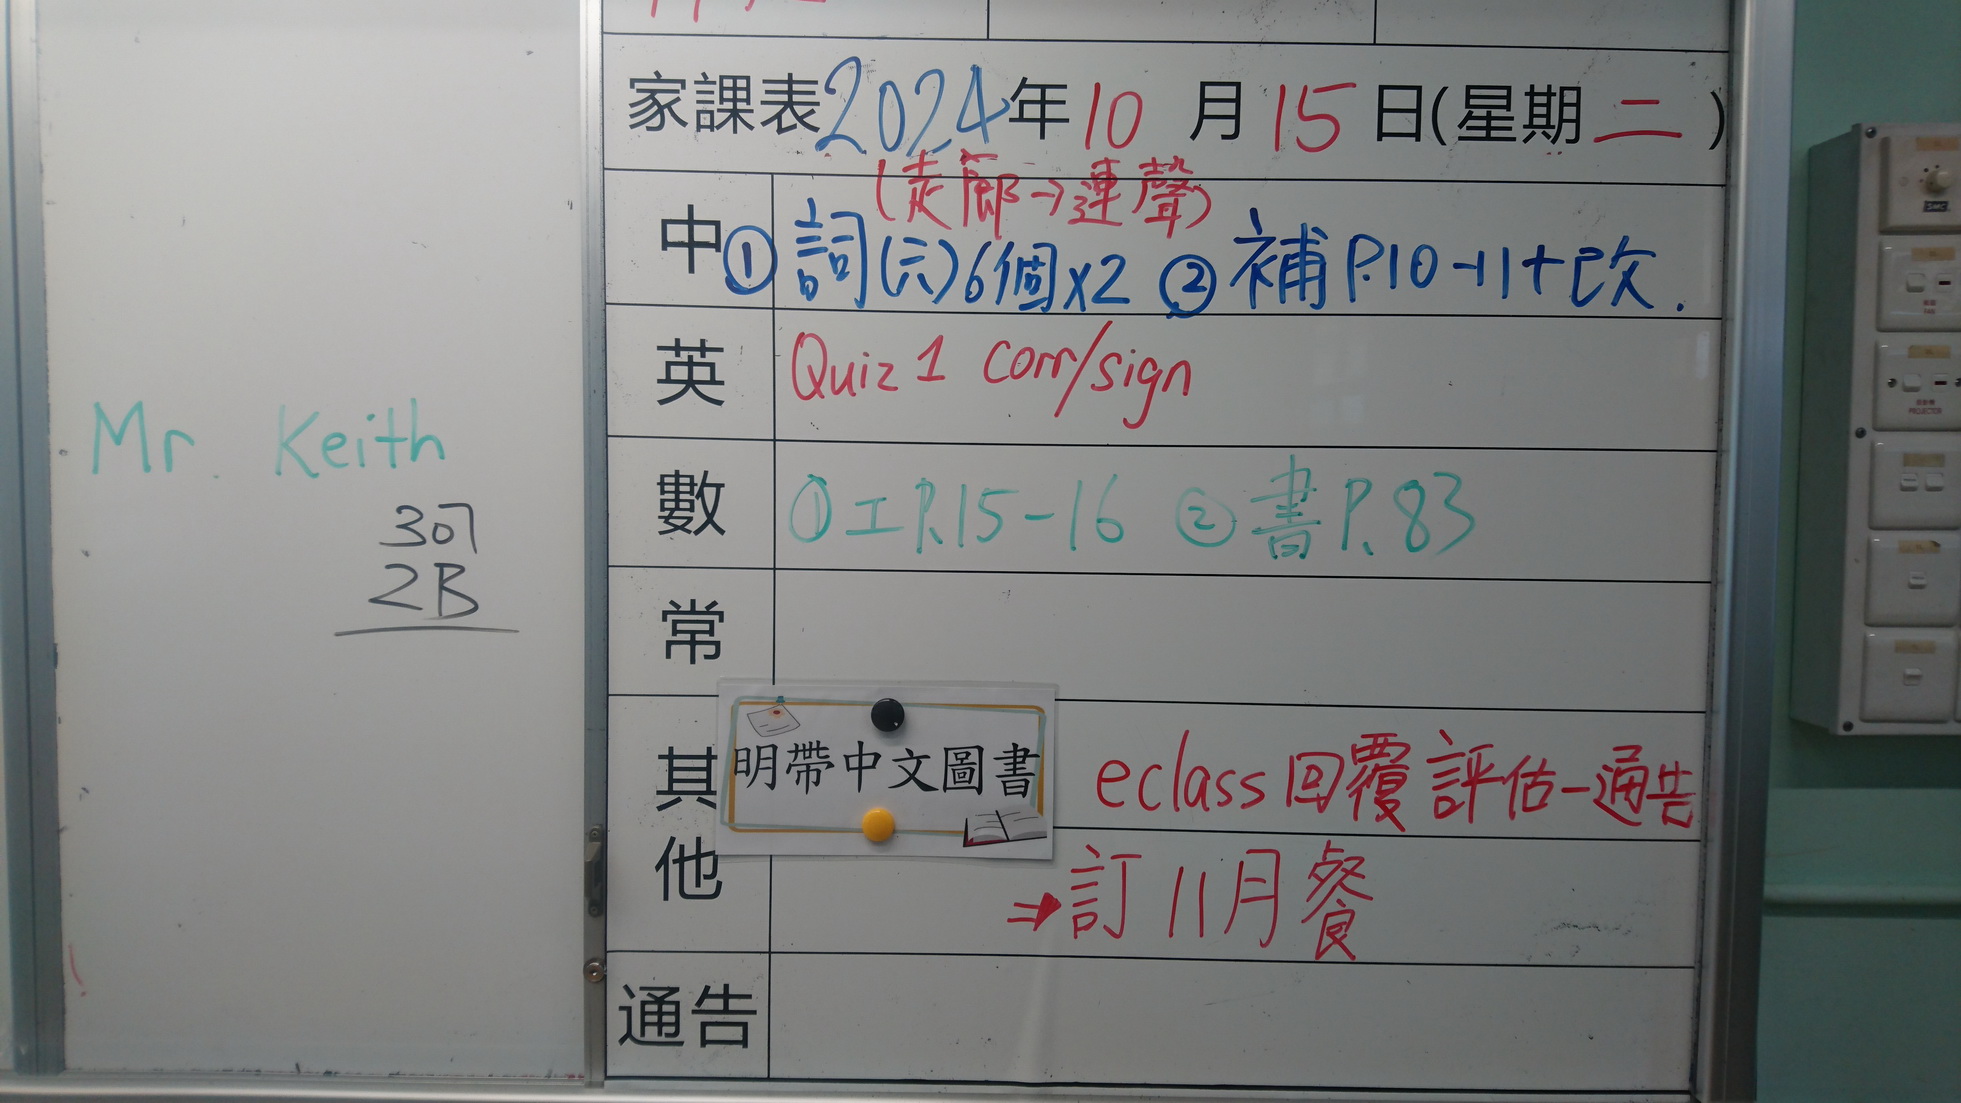 Mr. Keith
307
2B
家課表2024年10月15日(星期二)
(走廊→連聲)
中 ①詞(六)6個x2 ②補P.10-11+改.
英 Quiz 1 corr/sign
數 ①工P.15-16 ②書P.83
常
其他
明帶中文圖書
eclass回覆評估-通告
⇒訂11月餐
通告
PROJECTOR